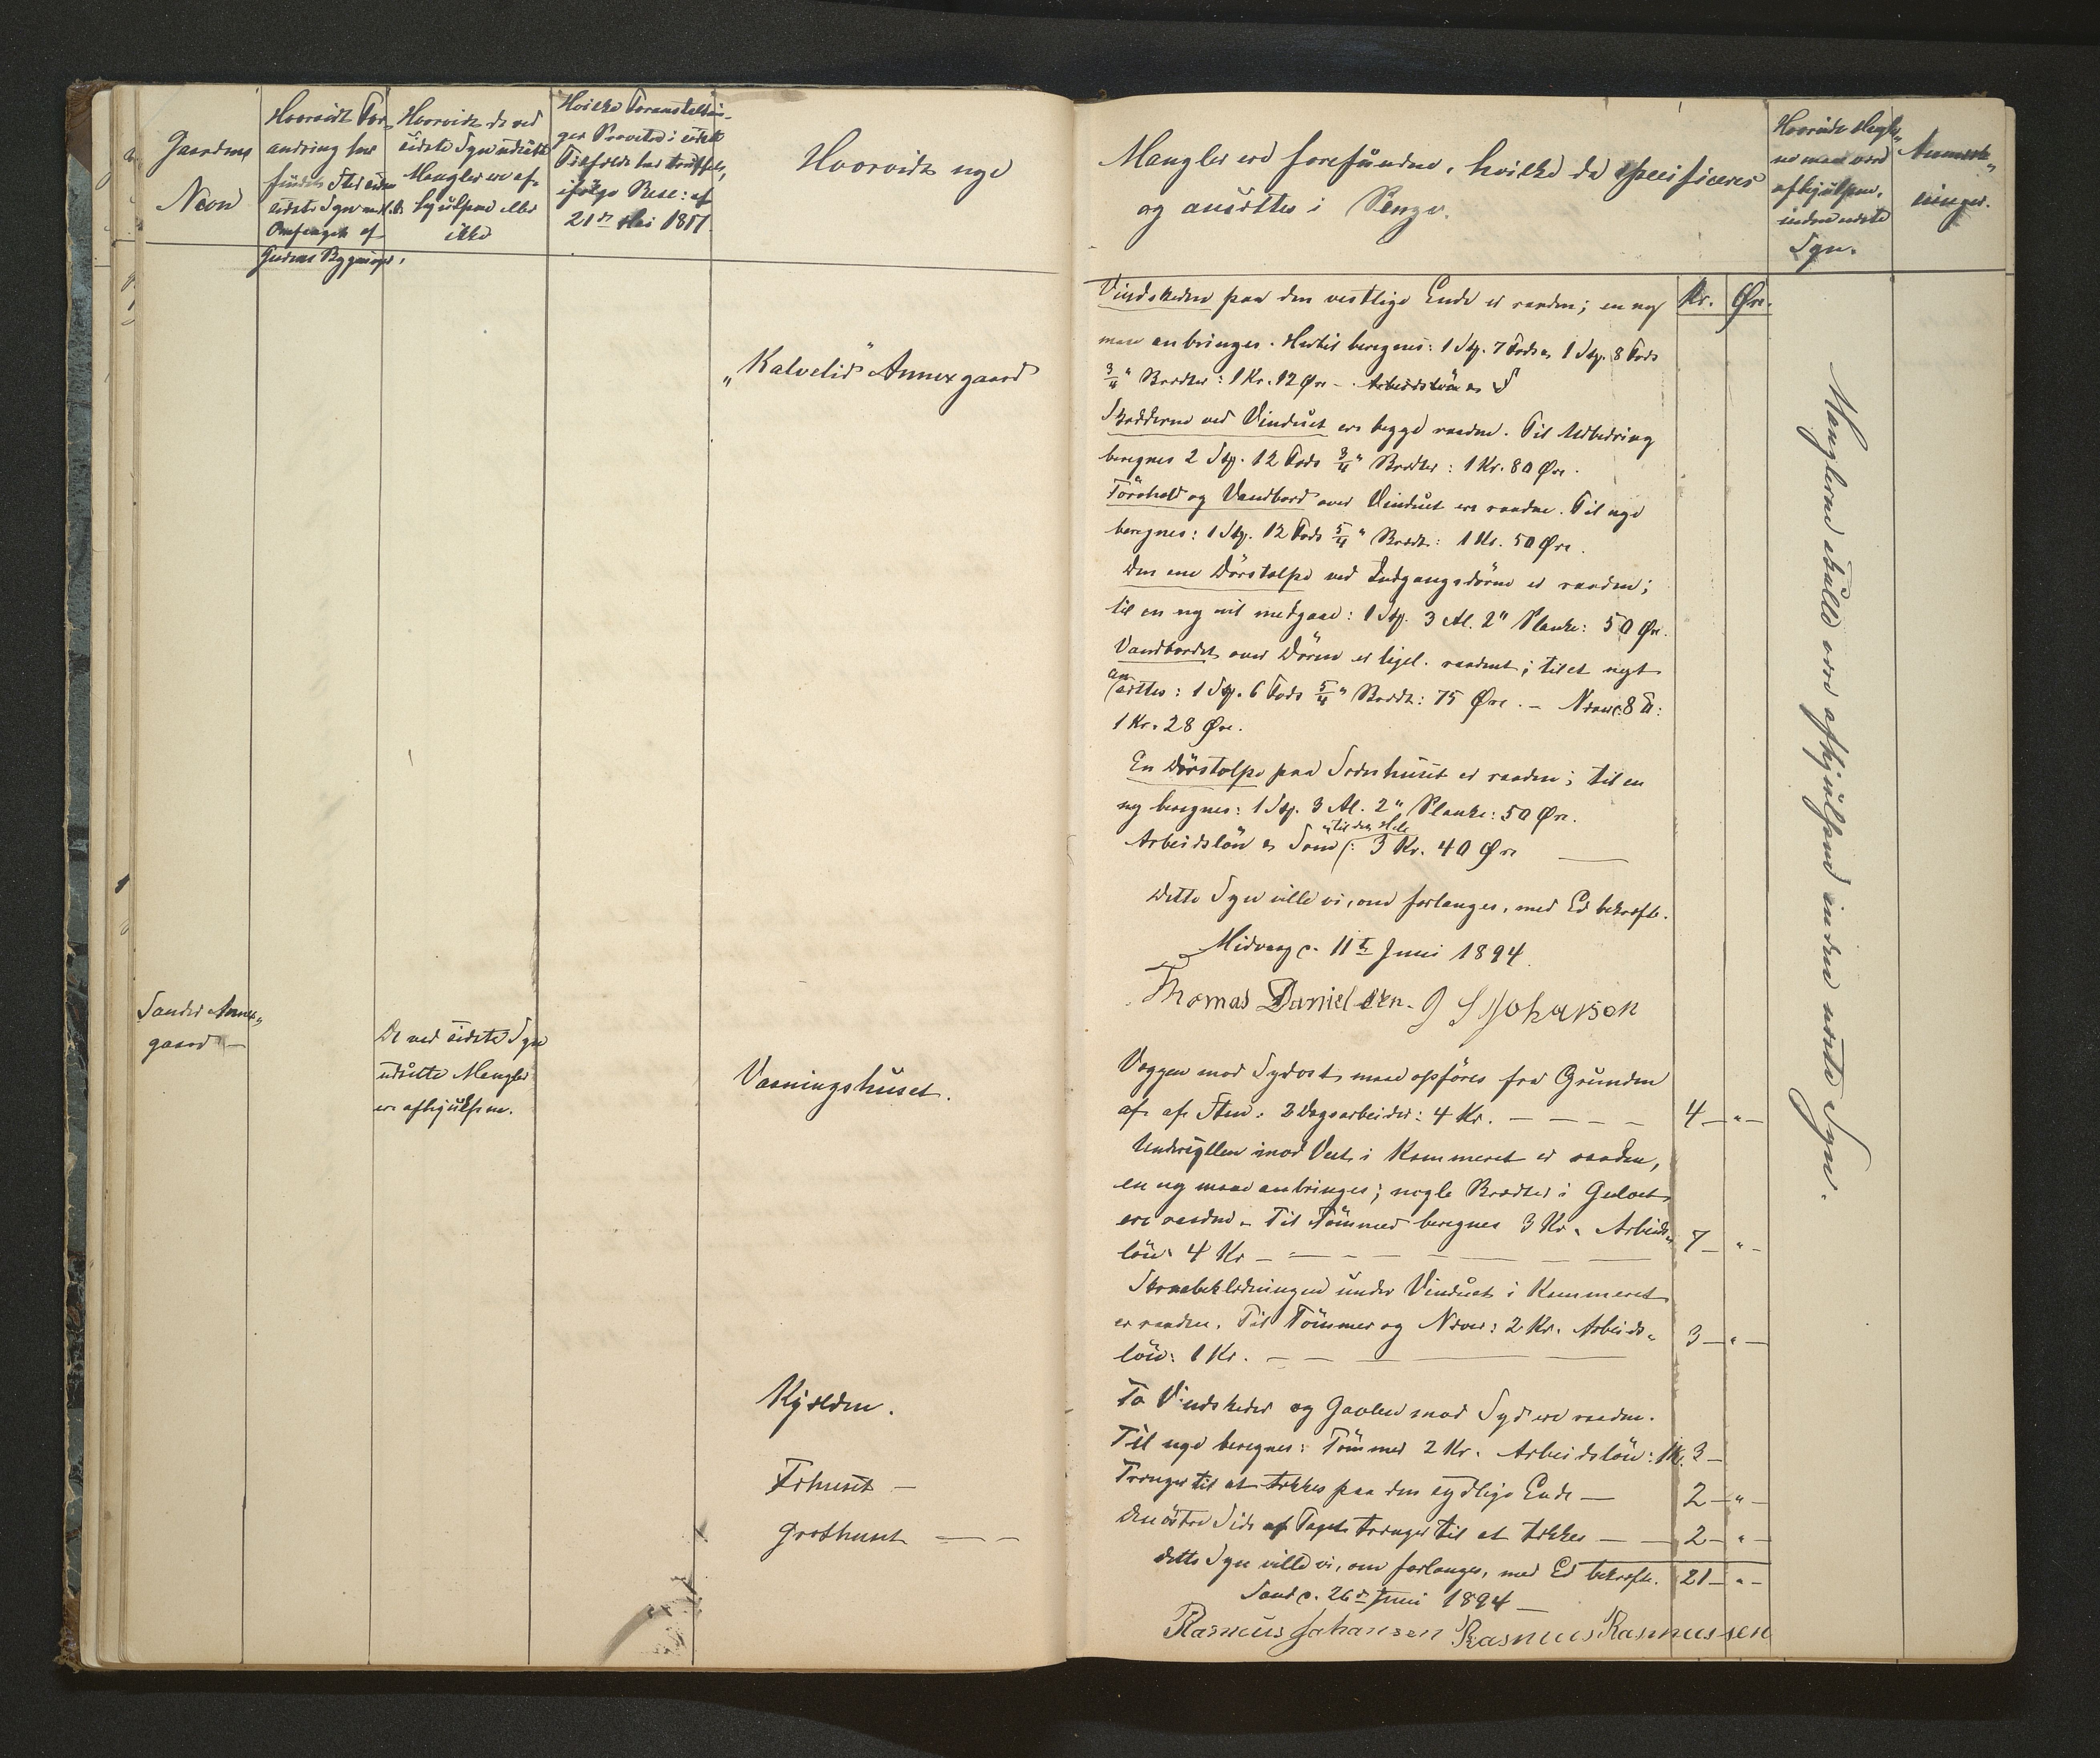 Gaardens
Navn
Hvorvidt For-
andring har
fundet Sted siden
sidste Syn med
Omfanget af
Gaardens Bygninger.
Hvorvidt de ved
sidste Syn udsatte
Mangler ere af-
hjulpne eller
ikke
Hvilke Foranstaltnin-
ger Provsten i sidste
Tilfælde har truffet,
ifølge Resc: af
21de Mai 1817.
Hvorvidt nye
"Kalvelid" Annexgaard
Sands Annex-
gaard —
De ved sidste Syn
udsatte Mangler
ere afhjulpne.
Vaaningshuset.
Kjælderen.
Fæhuset —
Grothuset — —
Mangler ere forefundne, hvilke da specificeres
og ansættes i Penge.
Hvorvidt Mangler-
ne maa være
afhjulpne,
inden næste
Syn.
Anmærk-
ninger.
Kr. Øre.
Vindskeden paa den vestlige Ende er raaden; en ny
maa anbringes. Hertil beregnes: 1 Stk. 7 Fods & 1 Stk. 8 Fods
3/4" Brædder: 1 Kr. 12 Øre — Arbeidsløn &
Brædderne ved Vinduet ere begge raadne. Til Udbedring
beregnes 2 Stk. 12 Fods 3/4" Brædder: 1 Kr. 80 Øre.
og Vandbord over Vinduet ere raadne. Til nye
beregnes: 1 Stk. 12 Fods 5/4" Brædt: 1 Kr. 50 Øre.
Den ene Dörstolpe ved Indgangsdøren er raaden;
til en ny vil medgaae: 1 Stk. 3 Al. 2" Planke: 50 Øre.
Vandbordet over Døren er ligel. raadent; til et nyt
ansættes: 1 Stk. 6 Fods 5/4" Brædt: 75 Øre. — Næver: 8 ℔:
1 Kr. 28 Øre.
En Dörstolpe paa huset er raaden; til en
ny beregnes: 1 Stk. 3 Al. 2" Planke: 50 Øre.
Arbeidsløn & Söm til det Hele: 3 Kr. 40 Øre —
Dette Syn ville vi, om forlanges, med Ed bekræfte.
Midvaag d. 11te Juni 1894.
Thomas Danielsen. J S Johansen
Væggen mod Sydost maa opføres fra Grunden
af af Sten: 2 Dagsarbeider: 4 Kr. — — — — 4 — " —
Undersyllen mod Vest i Kammeret er raaden,
en ny maa anbringes; nogle Brædder i Gulvet
ere raadne. Til Tömmer beregnes 3 Kr. Arbeids-
løn: 4 Kr — — — — 7 — " —
beklædningen under Vinduet i Kammeret
er raaden. Til Tömmer og Næver: 2 Kr. Arbeids-
løn: 1 Kr. — — — 3 — " —
To Vindskeder og Gavlen mod Syd ere raadne.
Til nye beregnes: Tömmer 2 Kr. Arbeidsløn: 1 Kr. 3 —
Trænger til at tækkes paa den sydlige Ende — 2 — " —
Den østre Side af Taget trænger til at tækkes — — 2 — " —
Dette Syn ville vi, om forlanges, med Ed bekræfte. 21 — " —
Sand d. 26de Juni 1894 —
Rasmus Johansen Rasmus Rasmussen
Manglerne skulle være afhjulpne inden næste Syn.